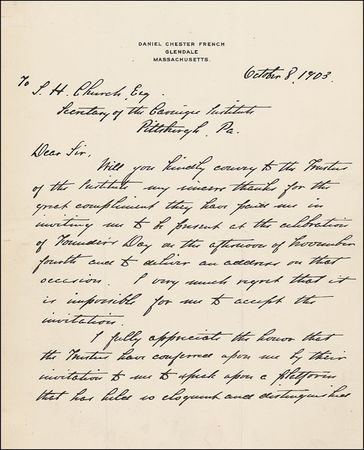 DANIEL CHESTER FRENCH
GLENDALE
MASSACHUSETTS.
October 8, 1903.
To
S. H. Church, Esq.
Secretary of the Carnegie Institute
Pittsburgh, Pa.
Dear Sir,
Will you kindly convey to the Trustees
of the Institute my sincere thanks for the
great compliment they have paid me in
inviting me to be present at the celebration
of Founder's Day on the afternoon of November
fourth and to deliver an address on that
occasion. I very much regret that it
is impossible for me to accept the
invitation.
I fully appreciate the honor that
the Trustees have conferred upon me by their
invitation to me to speak upon a platform
that has held so eloquent and distinguished